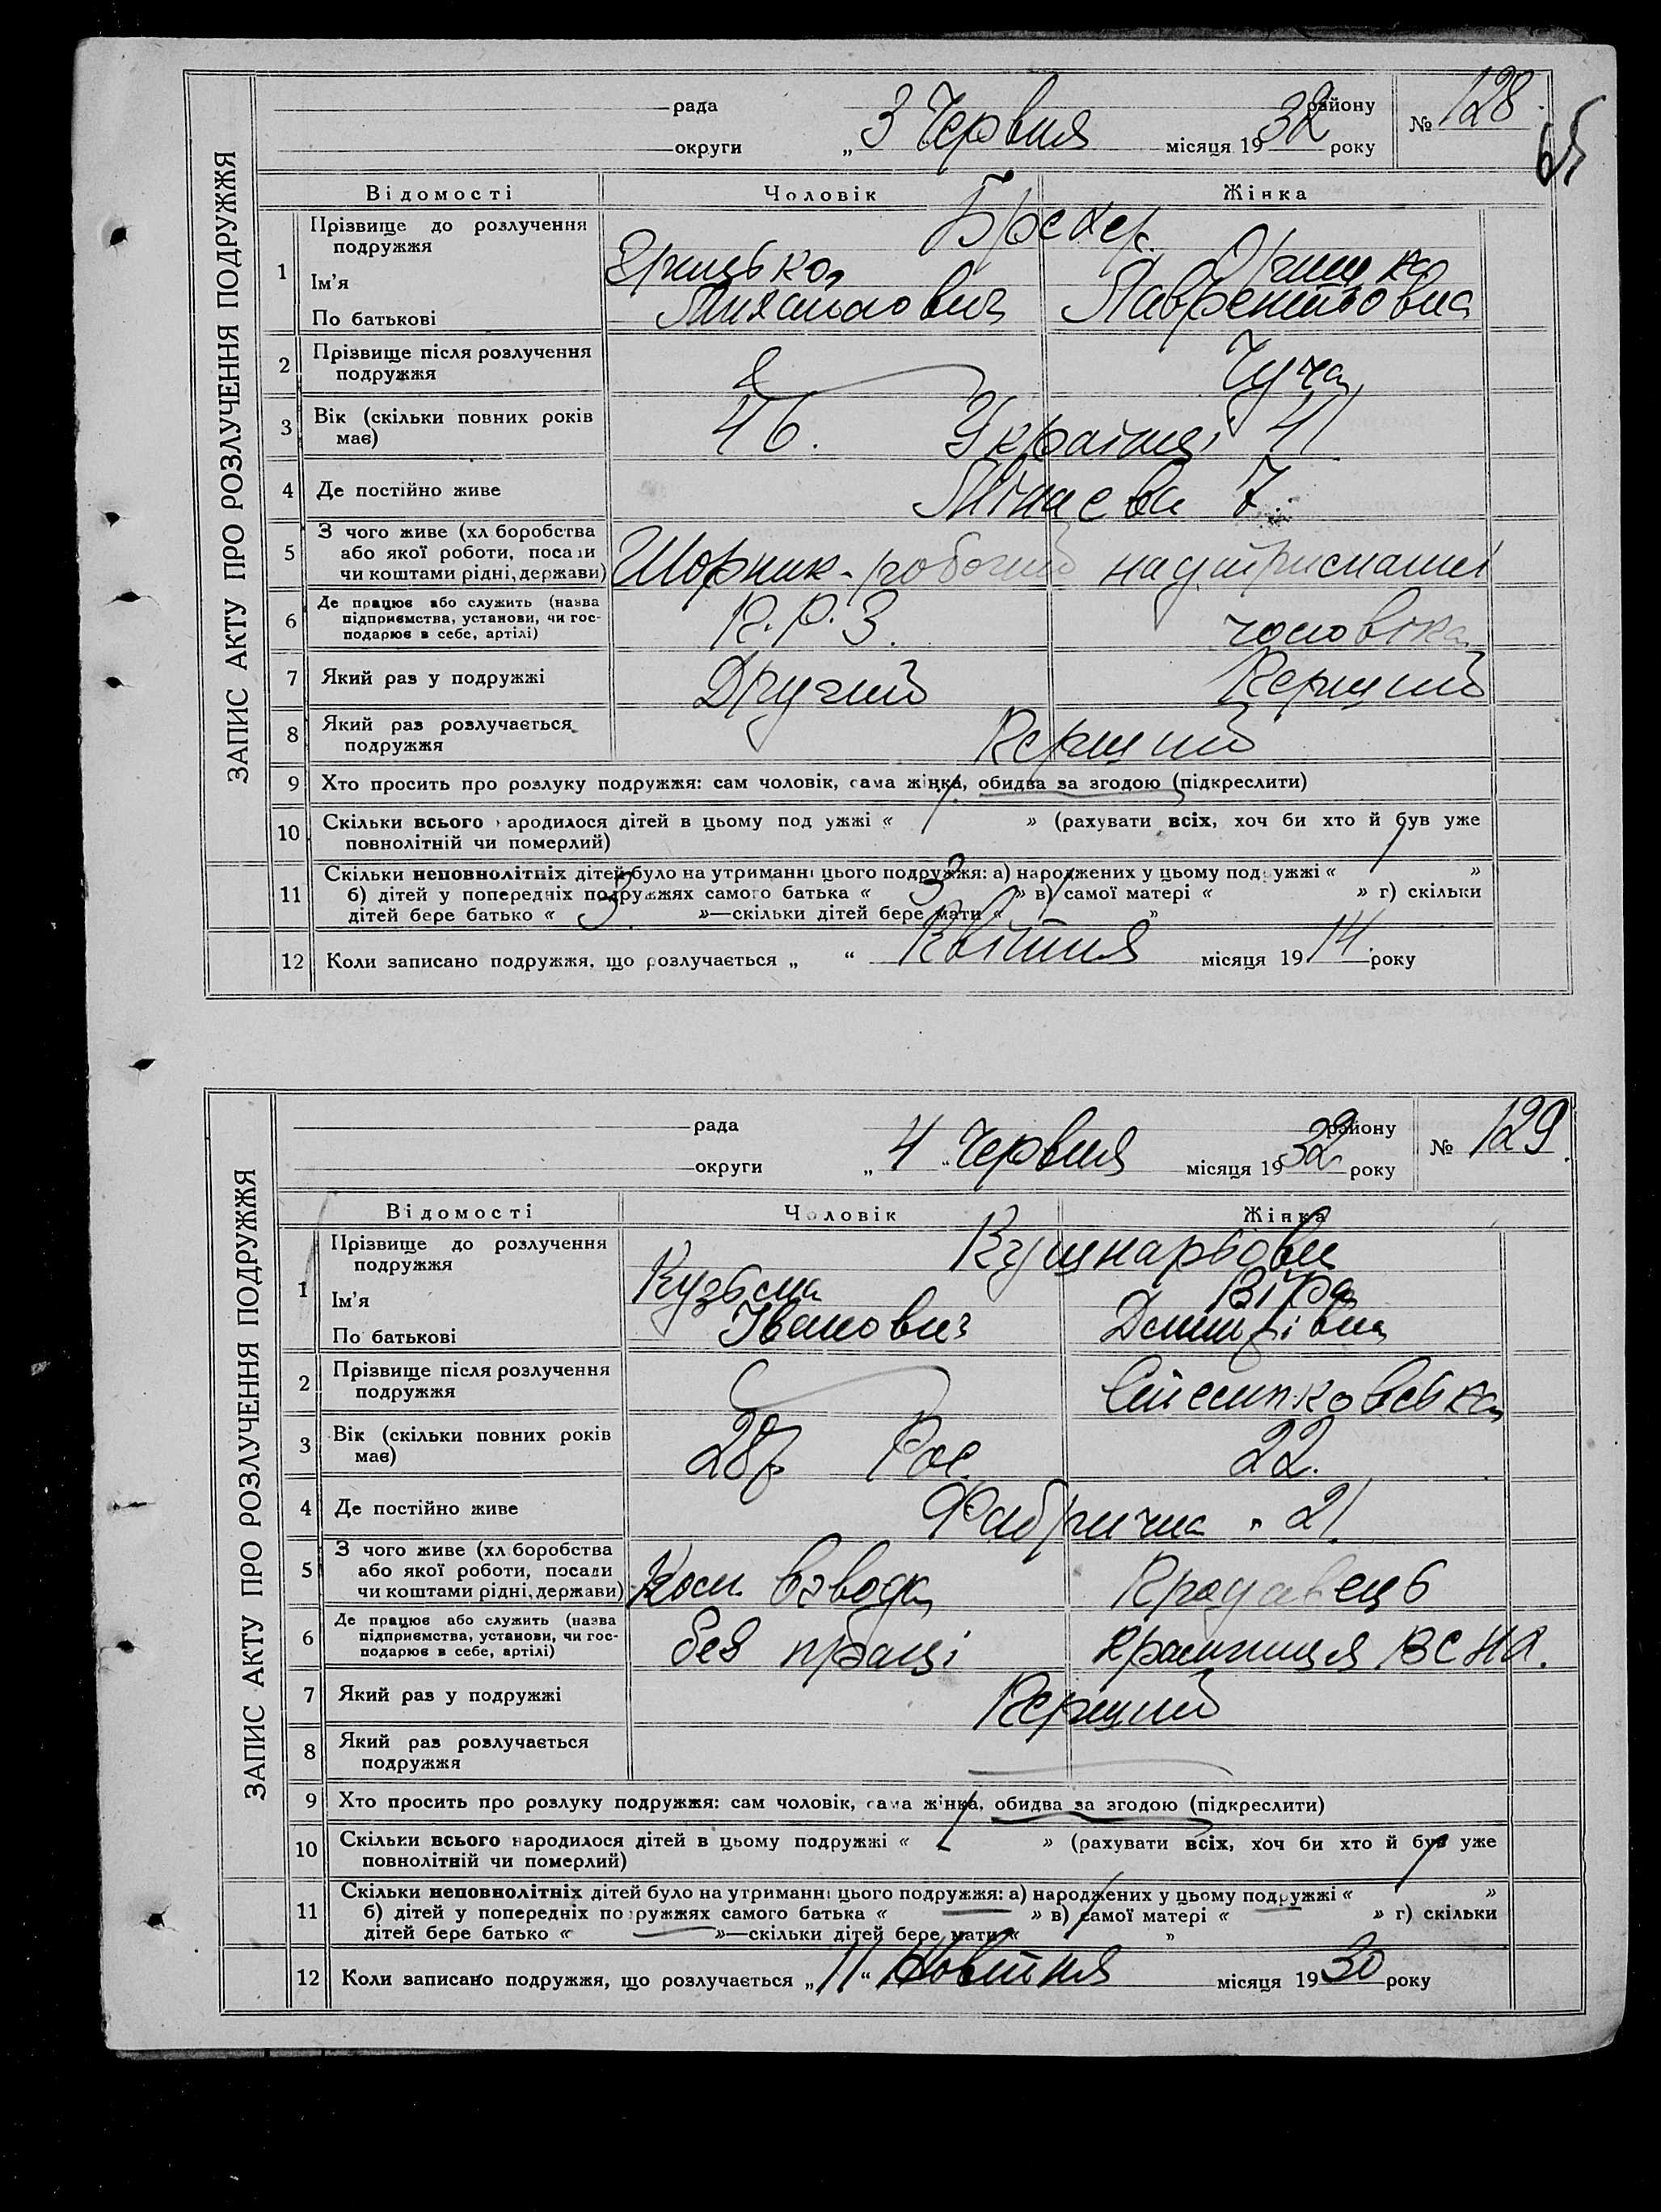 ЗАПИС АКТУ ПРО РОЗЛУЧЕННЯ ПОДРУЖЖЯ
рада району № 128
65
округи „ 3 Червня місяця 1932 року
Відомості Чоловік Жінка
1 Прізвище до розлучення подружжя
Ім'я Грицько
По батькові Михайлович Лаврентьовна
2 Прізвище після розлучення подружжя Чуча
3 Вік (скільки повних років має) 46. Українці 41
4 Де постійно живе 7.
5 З чого живе (хліборобства або якої роботи, посади чи коштами рідні, держави) Шорник-робочий на утриманні
6 Де працює або служить (назва підприємства, установи, чи господарює в себе, артілі) чоловіка
7 Який раз у подружжі Другий Перший
8 Який раз розлучається подружжя Перший
9 Хто просить про розлуку подружжя: сам чоловік, сама жінка, обидва за згодою (підкреслити)
10 Скільки всього народилося дітей в цьому подружжі « » (рахувати всіх, хоч би хто й був уже
повнолітній чи померлий)
11 Скільки неповнолітніх дітей було на утриманні цього подружжя: а) народжених у цьому подружжі « »
б) дітей у попередніх подружжях самого батька « 3 » в) самої матері « » г) скільки
дітей бере батько « 3 »—скільки дітей бере мати « »
12 Коли записано подружжя, що розлучається „ “ Квітня місяця 1914. року
ЗАПИС АКТУ ПРО РОЗЛУЧЕННЯ ПОДРУЖЖЯ
рада району № 129.
округи „ 4 “ Червня місяця 1932 року
Відомості Чоловік Жінка
1 Прізвище до розлучення подружжя Кушнарьови
Ім'я Кузьма Віра
По батькові Іванович Дмитрівна
2 Прізвище після розлучення подружжя
3 Вік (скільки повних років має) 28 Рос. 22.
4 Де постійно живе Фабрична 21
5 З чого живе (хліборобства або якої роботи, посади чи коштами рідні, держави) Ком. взвода Продавець
6 Де працює або служить (назва підприємства, установи, чи господарює в себе, артілі) без праці крамниця
7 Який раз у подружжі Перший
8 Який раз розлучається подружжя
9 Хто просить про розлуку подружжя: сам чоловік, сама жінка, обидва за згодою (підкреслити)
10 Скільки всього народилося дітей в цьому подружжі « » (рахувати всіх, хоч би хто й був уже
повнолітній чи померлий)
11 Скільки неповнолітніх дітей було на утриманні цього подружжя: а) народжених у цьому подружжі « »
б) дітей у попередніх подружжях самого батька « » в) самої матері « » г) скільки
дітей бере батько « »—скільки дітей бере мати « »
12 Коли записано подружжя, що розлучається „ 11 “ Жовтня місяця 1930 року